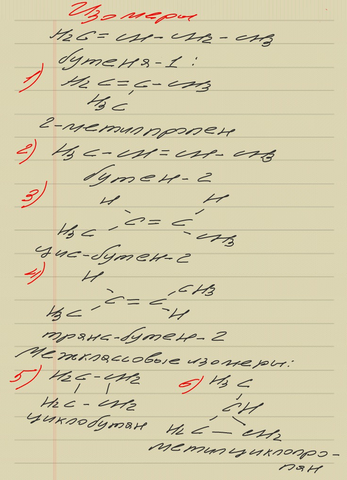 Изомеры
H2C=CH-CH2-CH3
бутена-1:
1) H2C=C-CH3
H3C
2-метилпропен
2) H3C-CH=CH-CH3
бутен-2
3) H H
C=C
H3C CH3
цис-бутен-2
4) H CH3
C=C
H3C H
транс-бутен-2
Межклассовые изомеры:
5) H2C-CH2 6) H3C
H2C-CH2 CH
циклобутан H2C-CH2
метилциклопро-
пан